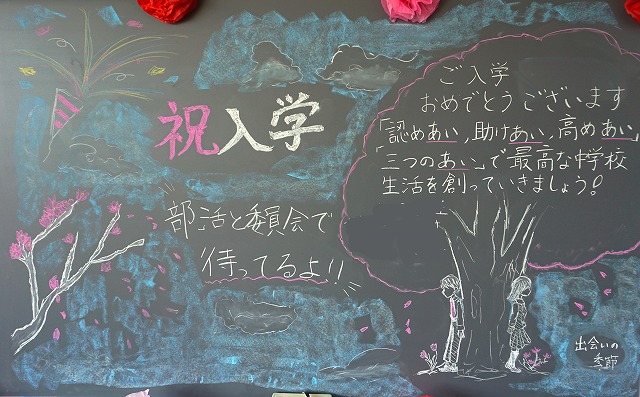 祝入学
部活と委員会で
待ってるよ!!
ご入学
おめでとうございます
「認めあい,助けあい,高めあい」
三つのあい」で最高な中学校
生活を創っていきましょう!
出会いの
季節